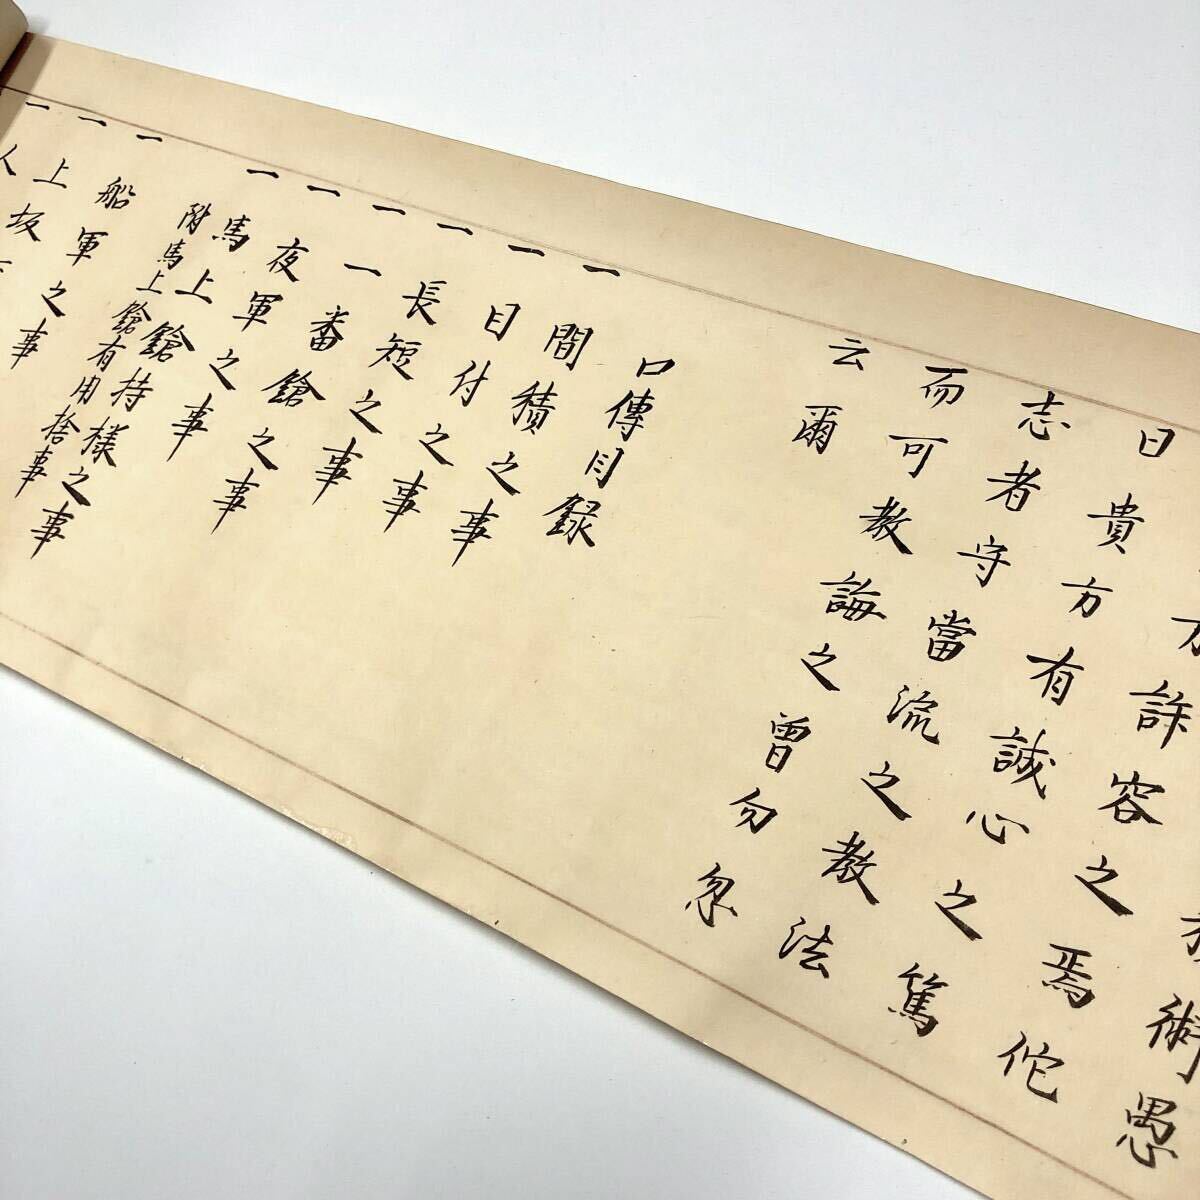 術愚
方許容之焉佗
日貴方有誠心之篤
志者守當流之教法
而可教誨之曾勿忽
云爾
口傳目録
一 間積之事
一 目付之事
一 長短之事
一 一番鎗之事
一 夜軍之事
一 馬上鎗持様之事
附馬上鎗有用捨事
一 船軍之事
一 上坂
一 人